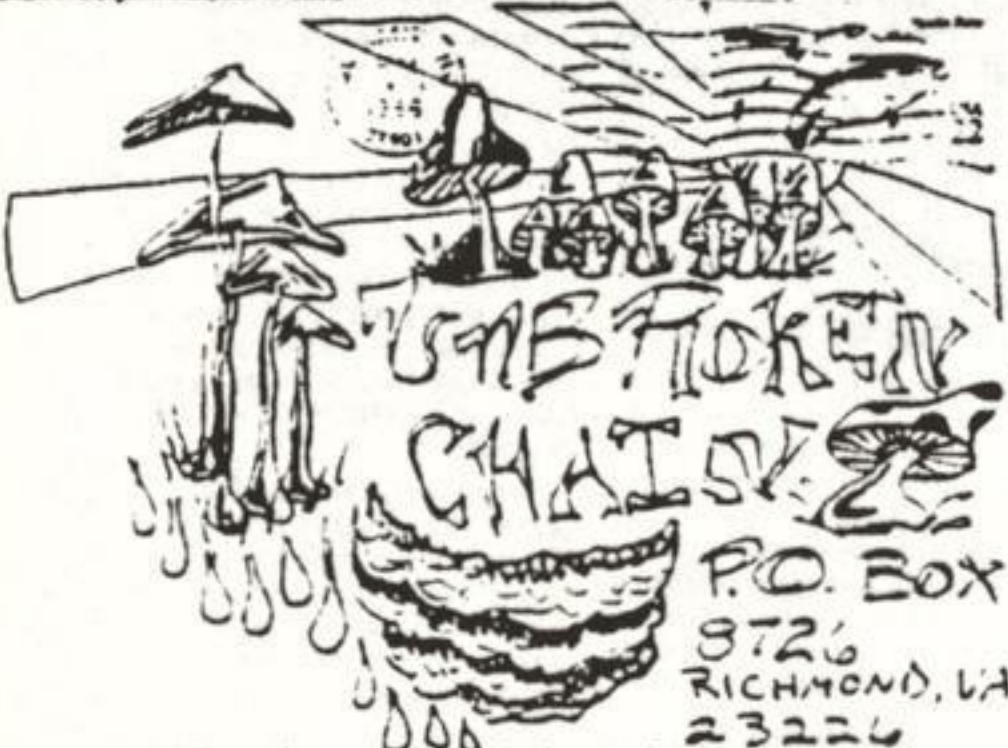 UNBROKEN
CHAIN
P.O. BOX
8726
RICHMOND, VA
23226